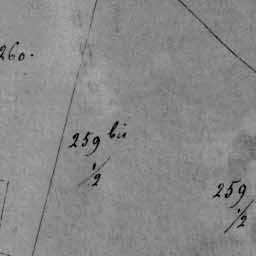 260.
259 bis
1/2
259
1/2